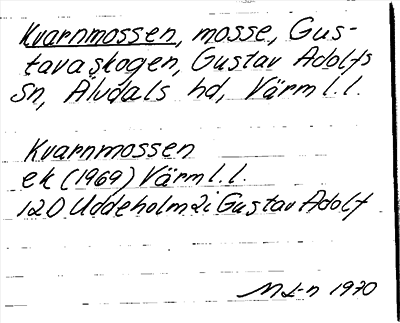 Kvarnmossen, mosse, Gus-
tavaskogen, Gustav Adolfs
sn, Älvdals hd, Värml. l.
Kvarnmossen
ek (1969) Värml. l.
12D Uddeholm 2i Gustav Adolf
1970